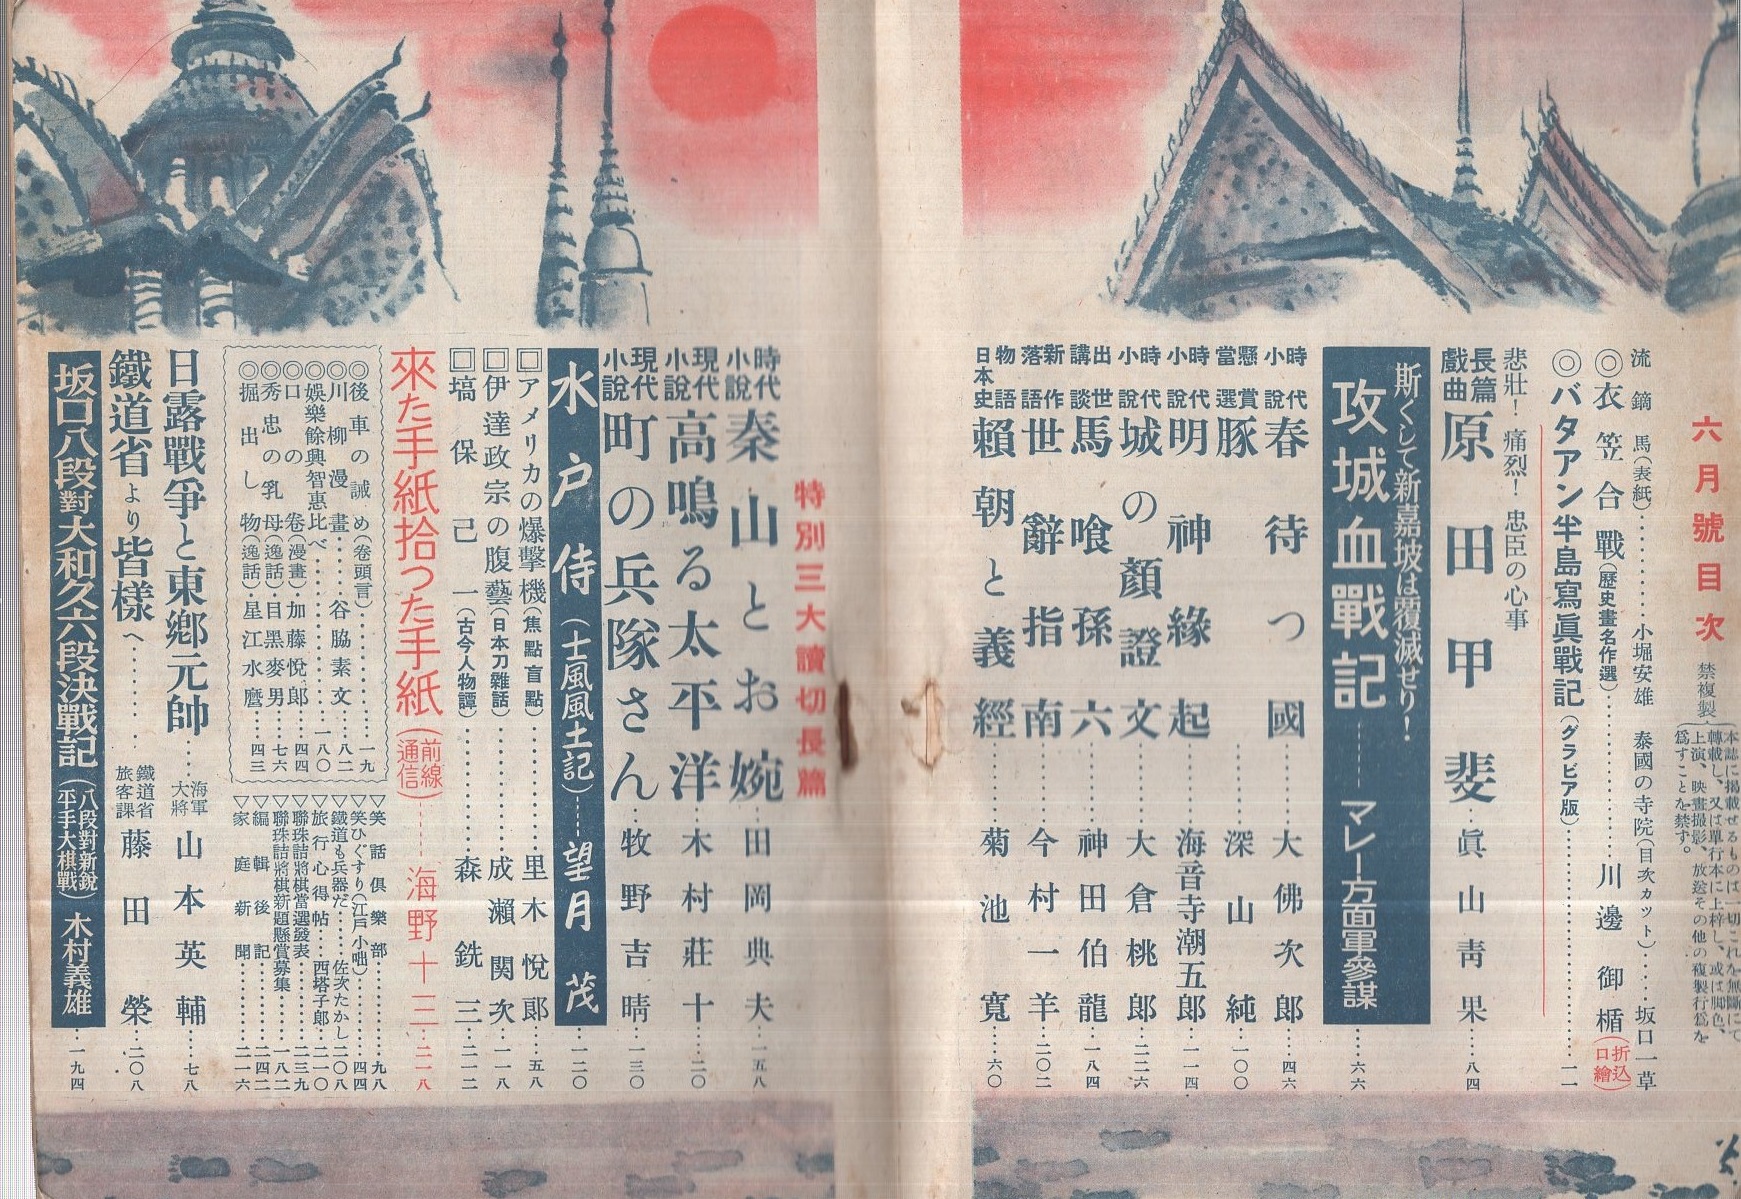 六月號目次
禁複製
本誌に掲載せるものは一切これを無斷にて
轉載し、又は單行本に上梓し、或は脚色、
上演、映畫撮影、放送その他の複製行爲を
爲すことを禁ず。
流鏑馬(表紙)………小堀安雄 泰國の寺院(目次カット)……坂口一草
◎衣笠合戰(歷史畫名作選)………川邊御楯(折込口繪)
◎バタアン半島寫眞戰記(グラビア版)………一一
悲壯!痛烈!忠臣の心事
長篇戲曲 原田甲斐 眞山青果…八四
斯くして新嘉坡は覆滅せり!
攻城血戰記……マレー方面軍參謀…六六
時代小說 春待つ國……大佛次郎…四六
懸賞當選 豚……深山純…一〇〇
時代小說 明神緣起……海音寺潮五郎…一一四
時代小說 城の顏證文……大倉桃郎…二二六
出世講談 馬喰孫六……神田伯龍…一八四
新作落語 世辭指南……今村一羊…二〇二
物語日本史 賴朝と義經……菊池寬…六〇
特別三大讀切長篇
時代小說 秦山とお婉…田岡典夫…一五八
現代小說 高鳴る太平洋…木村莊十…二〇
現代小說 町の兵隊さん…牧野吉晴…一三〇
水戶侍(士風風土記)……望月茂…一二〇
□アメリカの爆擊機(焦點盲點)………里木悅郎…五八
□伊達政宗の腹藝(日本刀雜話)………成瀨関次…一一八
□塙保己一(古今人物譚)………森銑三…二一二
來た手紙拾つた手紙(前線通信)……海野十三…二一八
◎後車の誡め(卷頭言)………一九
◎川柳漫畫……谷脇素文…八二
◎娛樂餘興智惠比べ………一八〇
◎口の卷(漫畫)・加藤悅郎…四四
◎秀忠の乳母(逸話)・目黑麥男…七六
◎掘出し物(逸話)・星江水麿…四三
▽笑話俱樂部………九八
▽笑ひぐすり(江戶小咄)………四四
▽鐵道も兵器だ……佐次たかし…二〇八
▽旅行心得帖……西塔子郎…二一〇
▽聯珠詰將棋當選發表………二三九
▽聯珠詰將棋新題懸賞募集………一八二
▽編輯後記………二四二
▽家庭新聞………二一六
日露戰爭と東鄕元帥…海軍大將 山本英輔…七八
鐵道省より皆樣へ……鐵道省旅客課 藤田榮…二〇八
坂口八段對大和久六段決戰記(八段對新銳平手大棋戰)木村義雄…一九四